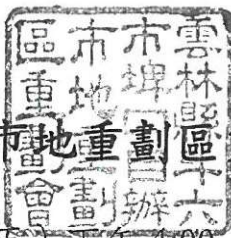 雲林縣斗六
市埤自辦
市地重劃
區重劃會
市地重劃區